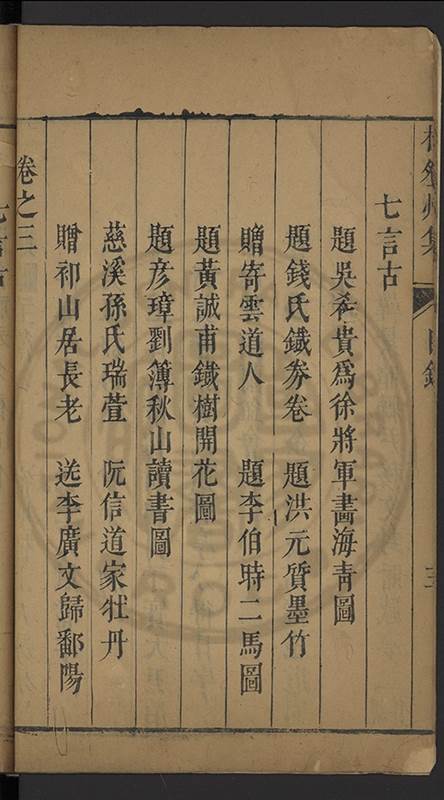 七言古
題吳希貴爲徐將軍畵海青圖
題錢氏鐵劵卷　題洪元質墨竹
贈寄雲道人　題李伯時二馬圖
題黃誠甫鐵樹開花圖
題彦璋劉簿秋山讀書圖
慈溪孫氏瑞萱　阮信道家牡丹
贈祁山居長老　送李廣文歸鄱陽
卷之三
七言古